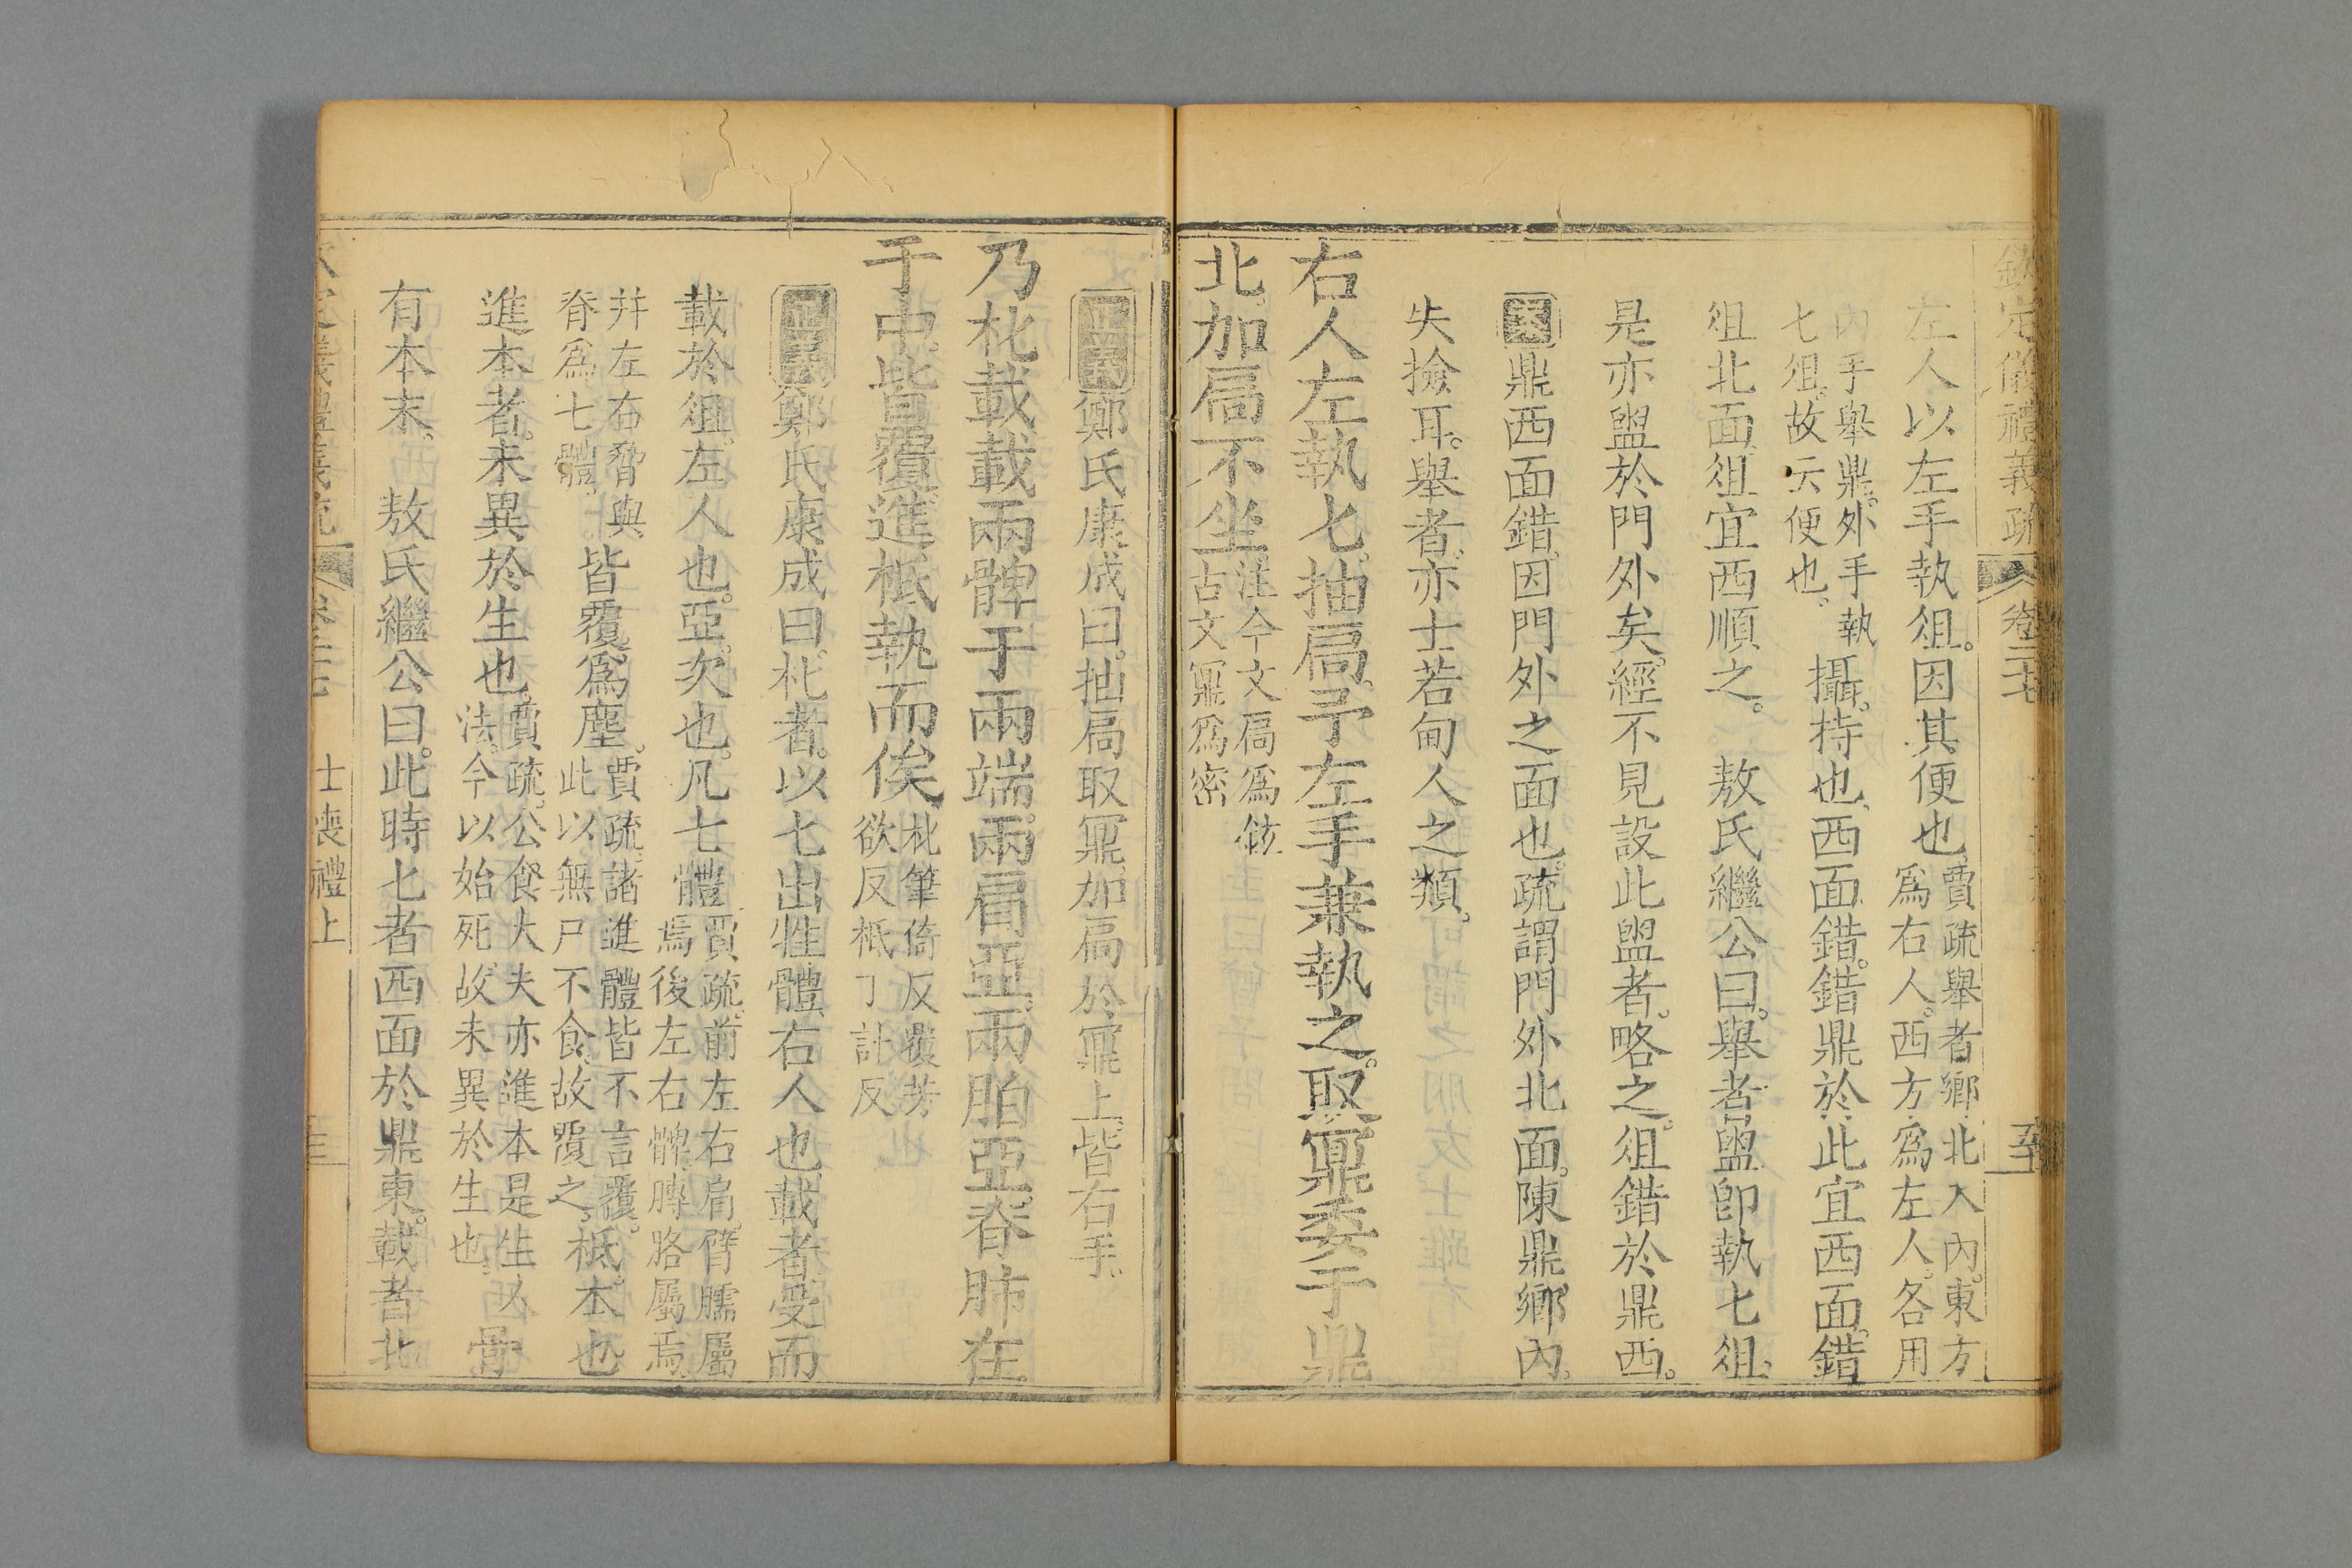 欽定儀禮義疏 卷二十七
左人以左手執俎。因其便也。賈疏。舉者鄉北入內。東方
爲右人。西方爲左人。各用
內手舉鼎。外手執
匕俎。故云便也。攝。持也。西面錯。錯鼎於此宜西面。錯
俎北面。俎宜西順之。敖氏繼公曰。舉者盥卽執匕俎。
是亦盥於門外矣。經不見設此盥者。略之。俎錯於鼎西。
鼎西面錯。因門外之面也。疏謂門外北面。陳鼎鄉內。
失撿耳。舉者。亦士若甸人之類。
右人左執匕。抽扃。予左手兼執之。取鼏委于鼎
北。加扃不坐。注今文扃爲鉉
古文鼏爲密
正義鄭氏康成曰。抽扃取鼏。加扃於鼏上。皆右手。
乃朼載。載兩髀于兩端。兩肩亞。兩胉亞。脊肺在
于中。皆覆。進柢。執而俟。朼筆倚反覆芳
欲反柢丁計反
正義鄭氏康成曰。朼者。以匕出牲體。右人也。載者。受而
載於俎。左人也。亞。次也。凡七體。賈疏。前左右肩。臂臑屬
焉。後左右髀。膊胳屬焉。
并左右脅與
脊爲七體。皆覆。爲塵。賈疏。諸進體皆不言覆。
此以無尸不食。故覆之。柢。本也。
進本者。未異於生也。賈疏。公食大夫亦進本。是生人
法。今以始死。故未異於生也。骨
有本末。敖氏繼公曰。此時匕者西面於鼎東。載者北
士喪禮上